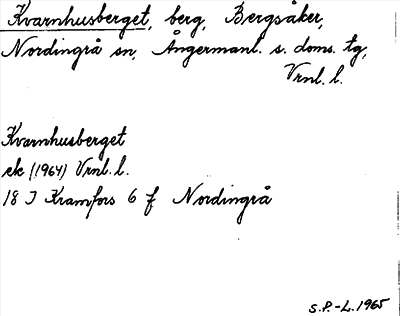 Kvarnhusberget, berg, Bergsåker,
Nordingrå sn, Ångermanl. s. doms. tg,
Vrnl. l.
Kvarnhusberget
ek (1964) Vrnl. l.
18 J Kramfors 6 f Nordingrå
S.P.-L. 1965